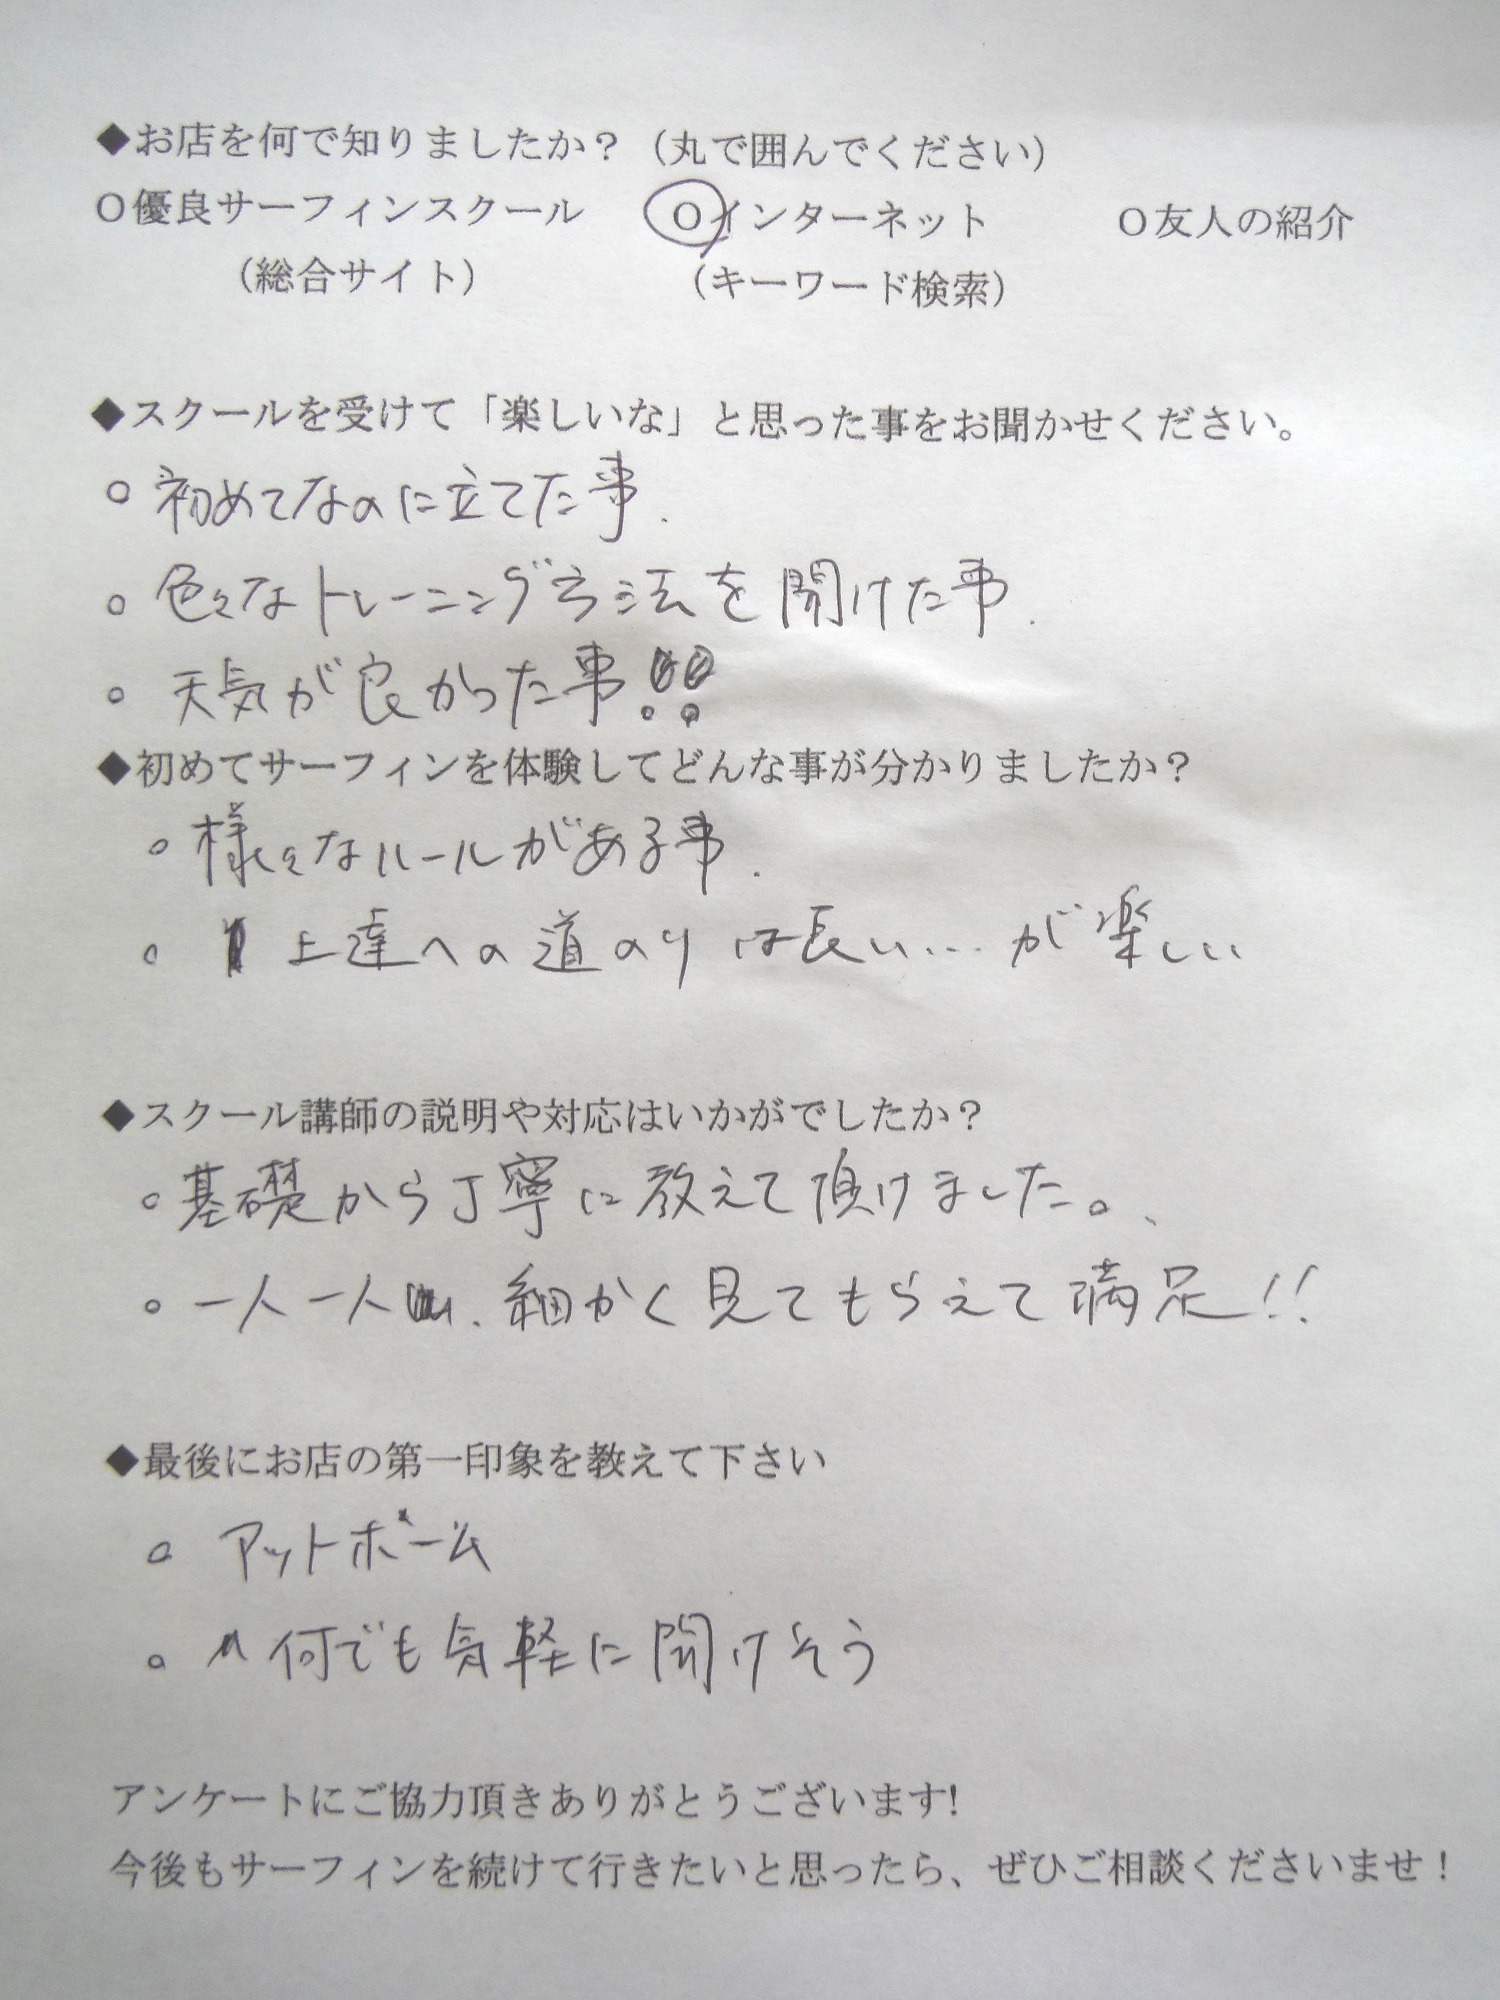 ◆お店を何で知りましたか？（丸で囲んでください）
○優良サーフィンスクール　○インターネット　○友人の紹介
（総合サイト）　（キーワード検索）
◆スクールを受けて「楽しいな」と思った事をお聞かせください。
○ 初めてなのに立てた事.
○ 色々なトレーニング方法を聞けた事.
○ 天気が良かった事!!
◆初めてサーフィンを体験してどんな事が分かりましたか？
○ 様々なルールがある事.
○ 上達への道のりは長い…が楽しい
◆スクール講師の説明や対応はいかがでしたか？
○ 基礎から丁寧に教えて頂けました。
○ 一人一人、細かく見てもらえて満足!!
◆最後にお店の第一印象を教えて下さい
○ アットホーム
○ 何でも気軽に聞けそう
アンケートにご協力頂きありがとうございます!
今後もサーフィンを続けて行きたいと思ったら、ぜひご相談くださいませ！